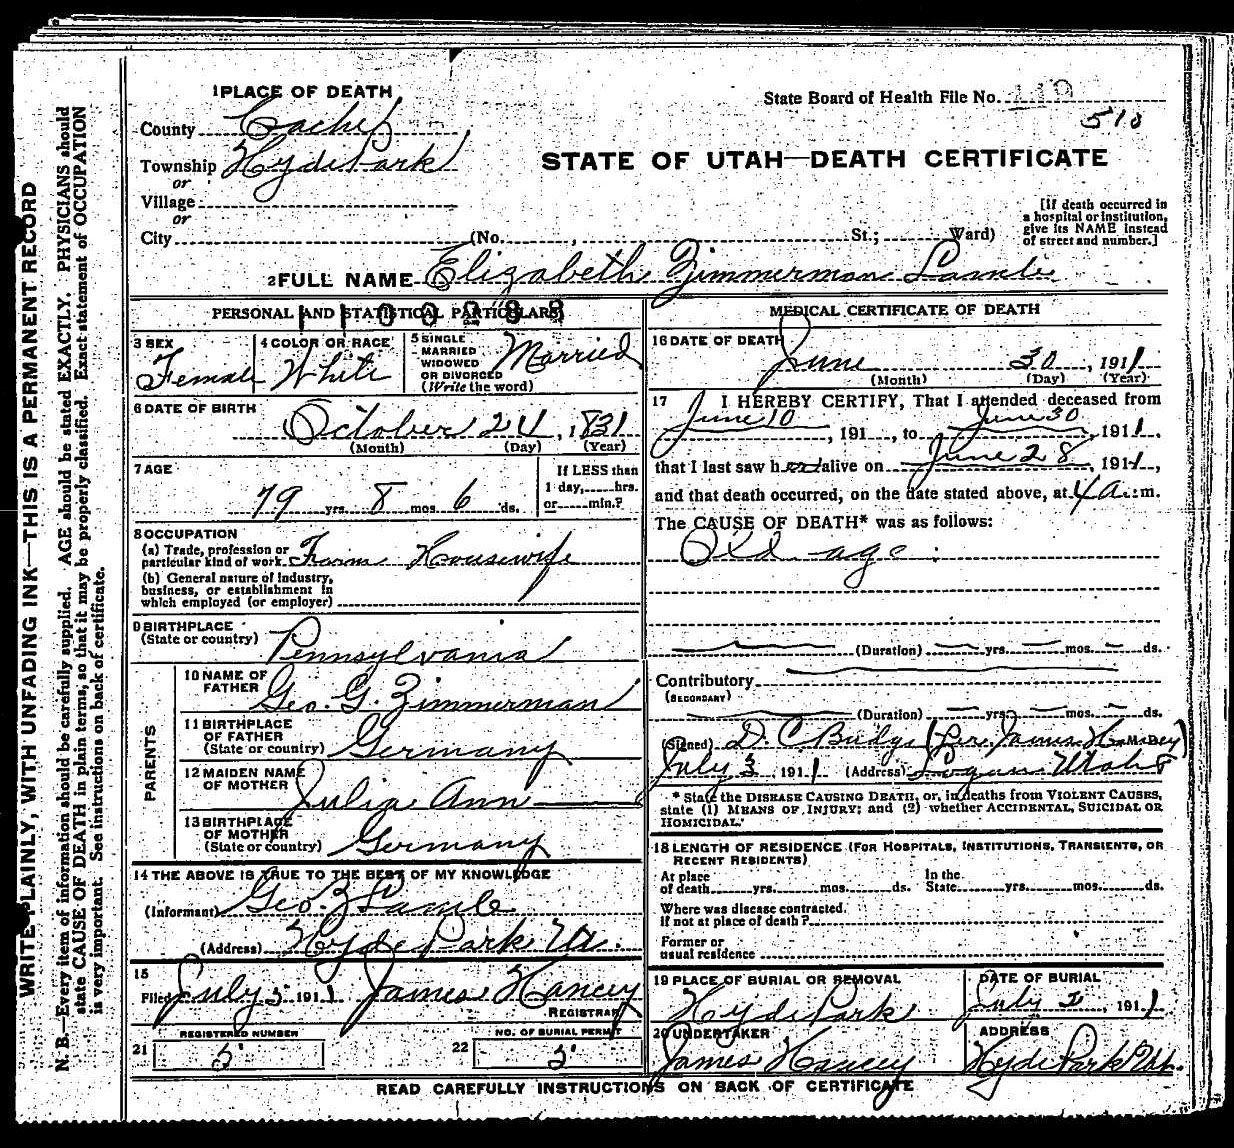 1 PLACE OF DEATH
State Board of Health File No. 119
510
County Cache
Township Hyde Park
or
Village
or
City (No. , St.; Ward)
STATE OF UTAH—DEATH CERTIFICATE
[If death occurred in a hospital or institution, give its NAME instead of street and number.]
2 FULL NAME Elizabeth Zimmerman Lamb
PERSONAL AND STATISTICAL PARTICULARS
3 SEX
Female
4 COLOR OR RACE
White
5 SINGLE
MARRIED
WIDOWED
OR DIVORCED
(Write the word)
Married
6 DATE OF BIRTH
October 24, 1831
(Month) (Day) (Year)
7 AGE
79 yrs. 8 mos. 6 ds.
If LESS than
1 day, hrs.
or min.?
8 OCCUPATION
(a) Trade, profession or
particular kind of work Farm Housewife
(b) General nature of industry,
business, or establishment in
which employed (or employer)
9 BIRTHPLACE
(State or country) Pennsylvania
PARENTS
10 NAME OF
FATHER Geo. G. Zimmerman
11 BIRTHPLACE
OF FATHER
(State or country) Germany
12 MAIDEN NAME
OF MOTHER Julia Ann
13 BIRTHPLACE
OF MOTHER
(State or country) Germany
14 THE ABOVE IS TRUE TO THE BEST OF MY KNOWLEDGE
(Informant) Geo. Z Lamb
(Address) Hyde Park Ut.
15
Filed July 5 1911 James Hancey
REGISTRAR
REGISTERED NUMBER
21 5
NO. OF BURIAL PERMIT
22 5
MEDICAL CERTIFICATE OF DEATH
16 DATE OF DEATH
June 30, 1911
(Month) (Day) (Year)
17 I HEREBY CERTIFY, That I attended deceased from
June 10, 191 , to June 30, 1911,
that I last saw her alive on June 28, 1911,
and that death occurred, on the date stated above, at 4 a. m.
The CAUSE OF DEATH* was as follows:
Old age.
(Duration) yrs. mos. ds.
Contributory
(SECONDARY)
(Duration) yrs. mos. ds.
(Signed) D. C. Budge (Per. James Hancey) M. D.
July 3, 1911 (Address) Logan Utah
* State the DISEASE CAUSING DEATH, or, in deaths from VIOLENT CAUSES,
state (1) MEANS OF INJURY; and (2) whether ACCIDENTAL, SUICIDAL OR
HOMICIDAL.
18 LENGTH OF RESIDENCE (FOR HOSPITALS, INSTITUTIONS, TRANSIENTS, OR
RECENT RESIDENTS)
At place
of death yrs. mos. ds.
In the
State yrs. mos. ds.
Where was disease contracted.
if not at place of death?
Former or
usual residence
19 PLACE OF BURIAL OR REMOVAL
Hyde Park
DATE OF BURIAL
July 2, 1911
20 UNDERTAKER
James Hancey
ADDRESS
Hyde Park Ut.
READ CAREFULLY INSTRUCTIONS ON BACK OF CERTIFICATE
WRITE PLAINLY, WITH UNFADING INK—THIS IS A PERMANENT RECORD
N. B.—Every item of information should be carefully supplied. AGE should be stated EXACTLY. PHYSICIANS should
state CAUSE OF DEATH in plain terms, so that it may be properly classified. Exact statement of OCCUPATION
is very important. See instructions on back of certificate.